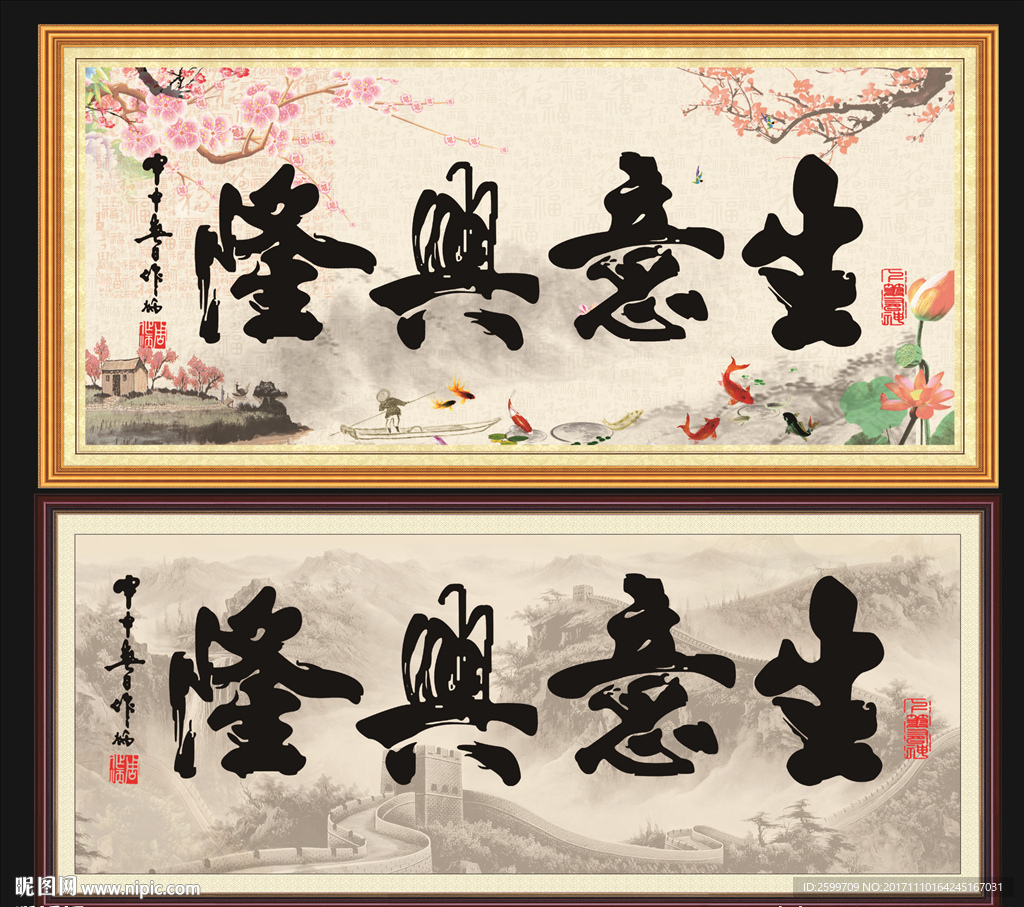 生意興隆
生意興隆
昵图网 www.nipic.com
ID:2599709 NO:20171110164245167031